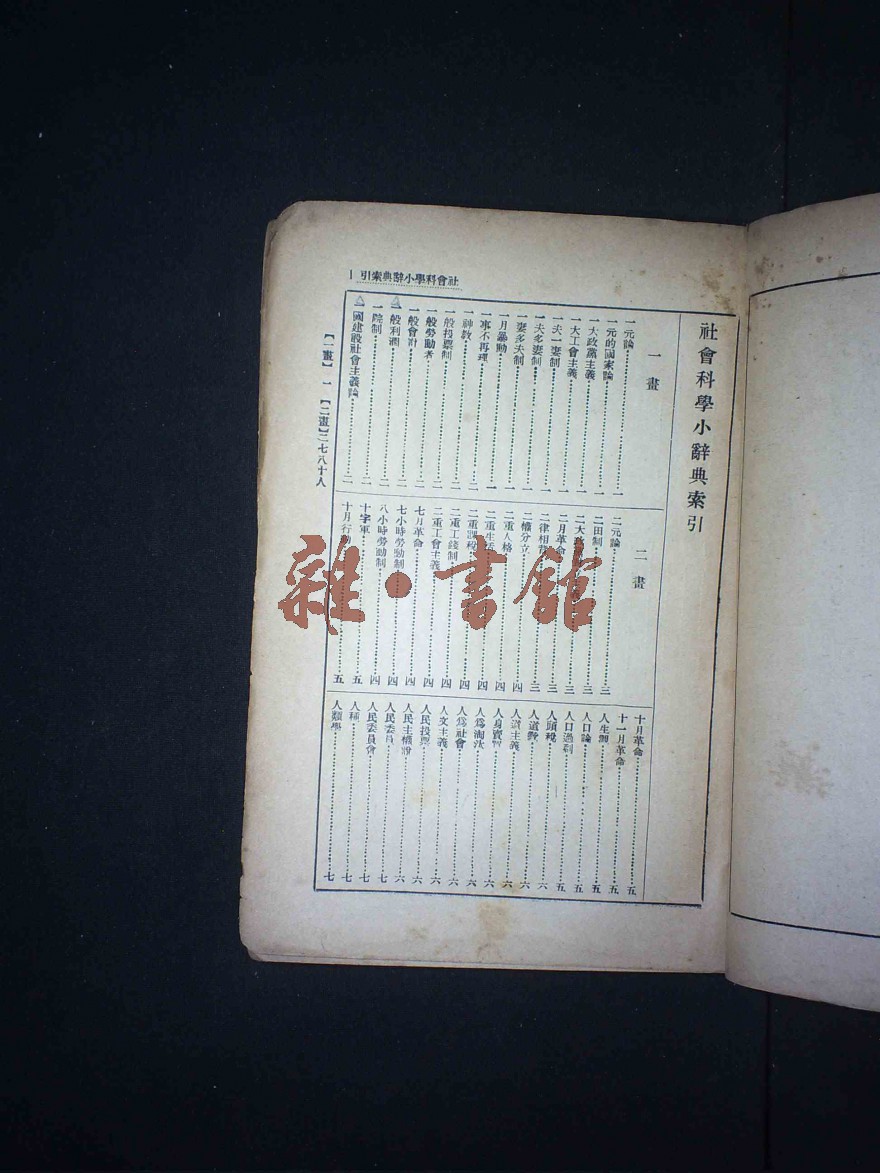 社會科學小辭典索引 一
社會科學小辭典索引
一畫
一元論……一
一元的國家論……一
一大政黨主義……一
一大工會主義……一
一夫一妻制……一
一夫多妻制……一
一妻多夫制……一
一月暴動……一
一事不再理……一
一神教……二
一般投票制……二
一般勞動者……二
一般會計……二
一般利潤……二
一院制……二
一國建設社會主義論……二
二畫
二元論……三
二田制……三
二大政……三
二月革命……三
二律相……三
二權分立……四
二重人格……四
二重生……四
二重課稅……四
二重工錢制……四
二重工會主義……四
七月革命……四
七小時勞動制……四
八小時勞動制……四
十字軍……五
十月行動……五
十月革命……五
十一月革命……五
人生觀……五
人口論……五
人口過剩……五
人頭稅……六
人道教……六
人道主義……六
人身賣買……六
人為淘汰……六
人為社會……六
人文主義……六
人民投票……六
人民主權說……六
人民委員……七
人民委員會……七
人種……七
人類學……七
【一畫】一 【二畫】二七八十人
雜·書館